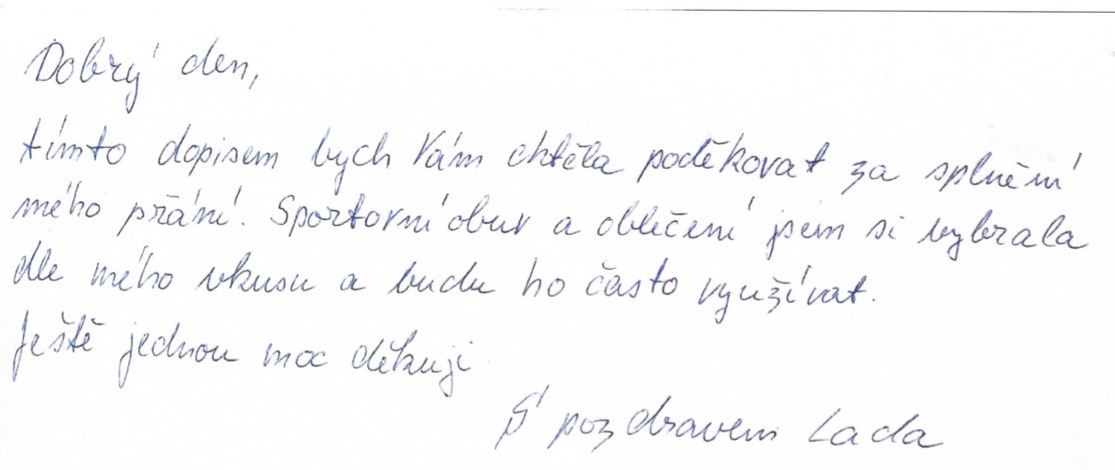 Dobrý den,
tímto dopisem bych Vám chtěla poděkovat za splnění
mého přání. Sportovní obuv a oblečení jsem si vybrala
dle mého vkusu a budu ho často využívat.
Ještě jednou moc děkuji
S pozdravem Lada